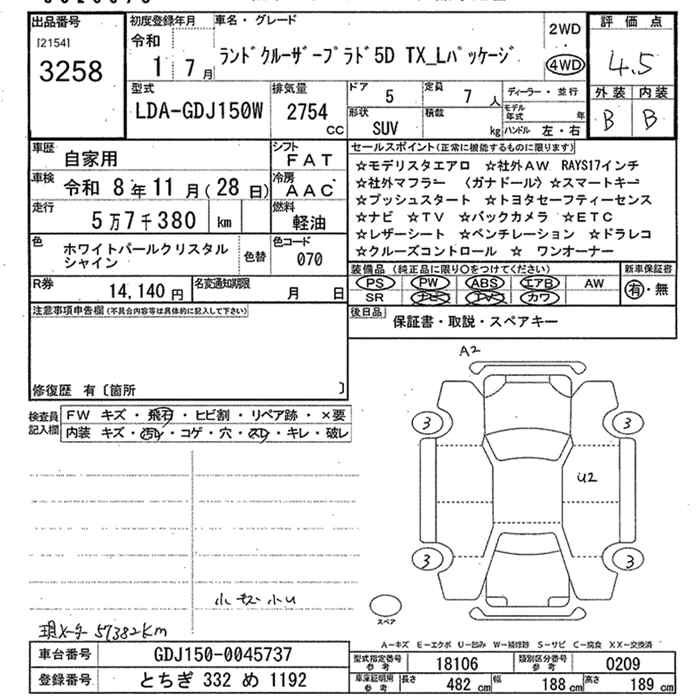 出品番号 初度登録年月 車名・グレード 評価点
[2154] 令和 ランドクルーザープラド5D TX_Lパッケージ 2WD 4.5
3258 1 7月 4WD 外装 内装
型式 排気量 ドア 5 定員 7人 ディーラー・並行 B B
LDA-GDJ150W 2754 CC 形状 SUV 積載 kg モデル年式 年
ハンドル 左・右
車歴 自家用 シフト FAT セールスポイント(正常に機能するものに限ります)
車検 令和 8年11月(28日) 冷房 AAC ☆モデリスタエアロ ☆社外AW RAYS17インチ
☆社外マフラー 〈ガナドール〉☆スマートキー
走行 5万7千380 km 燃料 軽油 ☆プッシュスタート ☆トヨタセーフティーセンス
☆ナビ ☆TV ☆バックカメラ ☆ETC
色 ホワイトパールクリスタルシャイン 色替 色コード 070 ☆レザーシート ☆ベンチレーション ☆ドラレコ
☆クルーズコントロール ☆ ワンオーナー
R券 14,140円 名変通知期限 月 日 装備品 (純正品に限り○をつけてください) 新車保証書
PS PW ABS エアB AW 有・無
SR ナビ TV カワ
注意事項申告欄(不具合内容等は具体的に記入して下さい) 後日品 保証書・取説・スペアキー
修復歴 有〔箇所 〕
検査員記入欄 FW キズ・飛石・ヒビ割・リペア跡・×要
内装 キズ・汚れ・コゲ・穴・スレ・キレ・破レ
A2
3 3
U2
3 3
スペア
現メータ 57382Km
A-キズ E-エクボ U-凹み W-補修跡 S-サビ C-腐食 XX-交換済
車台番号 GDJ150-0045737 型式指定番号参考 18106 類別区分番号参考 0209
登録番号 とちぎ 332 め 1192 車庫証明用参考 長さ 482 cm 幅 188 cm 高さ 189 cm